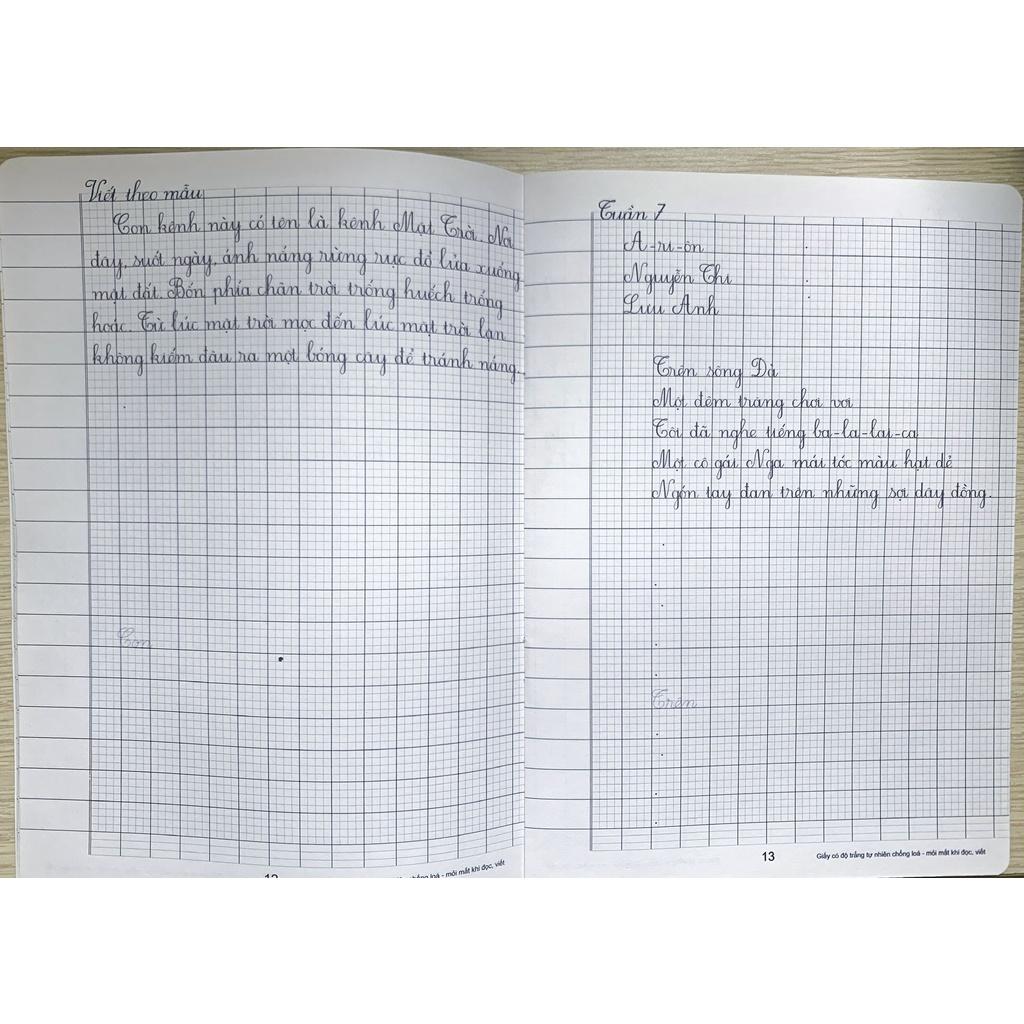 Viết theo mẫu
Con kênh này có tên là kênh Mặt Trời. Nơi
đây, suốt ngày, ánh nắng rừng rực đổ lửa xuống
mặt đất. Bốn phía chân trời trống huếch trống
hoác. Từ lúc mặt trời mọc đến lúc mặt trời lặn
không kiếm đâu ra một bóng cây để tránh nắng.
Con
Tuần 7
A-ri-ôn
Nguyễn Thi
Lưu Anh
Trên sông Đà
Một đêm trăng chơi vơi
Tôi đã nghe tiếng ba-la-lai-ca
Một cô gái Nga mái tóc màu hạt dẻ
Ngón tay đan trên những sợi dây đồng.
Trên
13 Giấy có độ trắng tự nhiên chống loá - mỏi mắt khi đọc, viết
chống loá - mỏi mắt khi đọc, viết